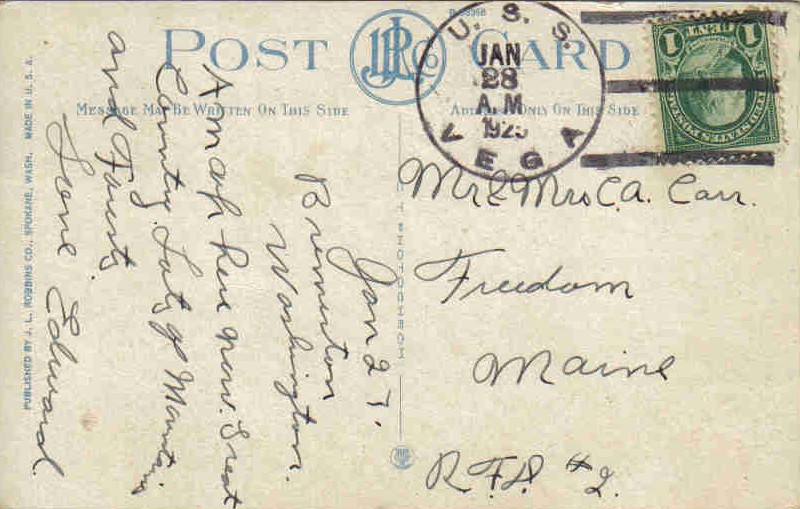 POST CARD
JLR Co
U. S. S.
JAN
28
A.M
1925
VEGA
1 CENT 1
MESSAGE MAY BE WRITTEN ON THIS SIDE
ADDRESS ONLY ON THIS SIDE
PUBLISHED BY J. L. ROBBINS CO., SPOKANE, WASH. MADE IN U. S. A.
Jan 27.
Bremerton
Washington.
Am up here now. Great
Country. Lots of Mountains
and Forests.
Love Edward.
Mr & Mrs C.A. Carr.
Freedom
Maine
R.F.D. #2.